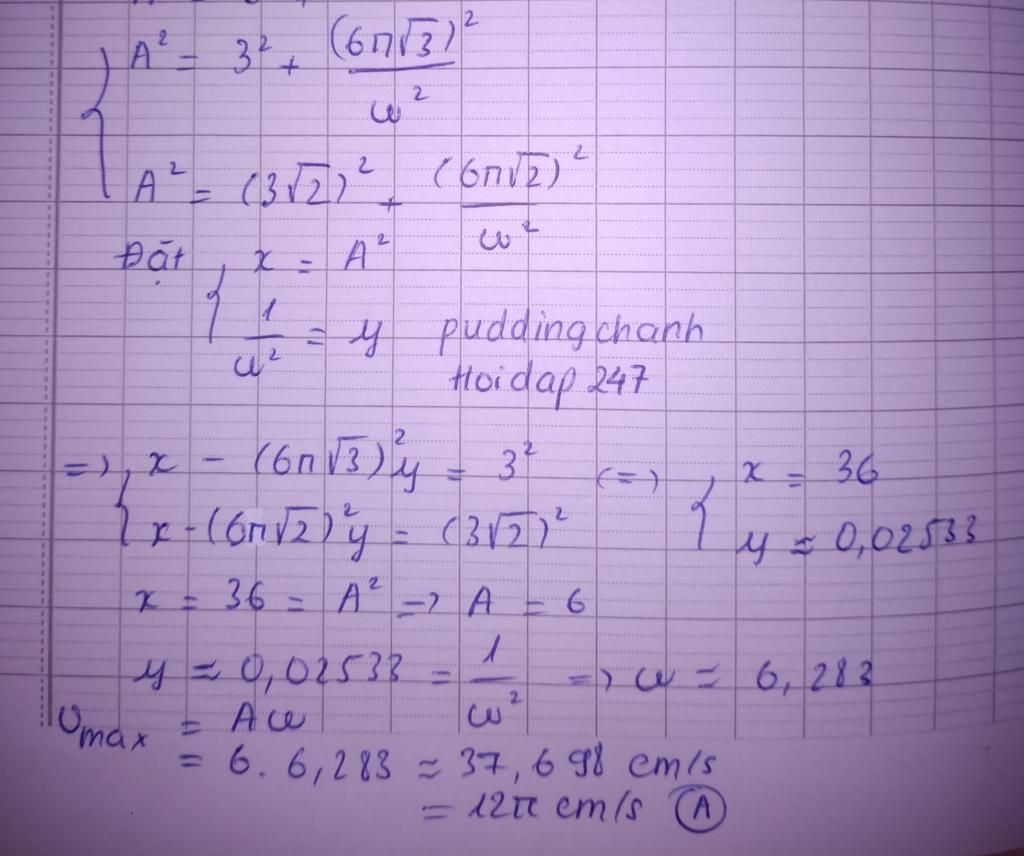 A² = 3² + (6π√3)² / ω²
A² = (3√2)² + (6π√2)² / ω²
Đặt { x = A²
1/ω² = y puddingchanh
Hoidap 247
=> { x - (6π√3)²y = 3² (=) { x = 36
x - (6π√2)²y = (3√2)² y ≈ 0,02533
x = 36 = A² => A = 6
y ≈ 0,02533 = 1/ω² => ω ≈ 6,283
υmax = Aω
= 6. 6,283 ≈ 37,698 cm/s
= 12π cm/s Ⓐ